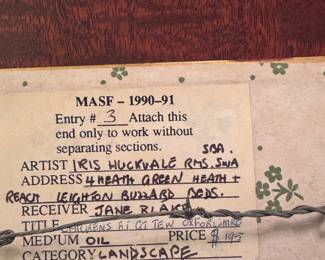 MASF - 1990-91
Entry # 3 Attach this
end only to work without
separating sections.
SBA.
ARTIST IRIS HUCKVALE RMS. SWA
ADDRESS 4 HEATH GREEN HEATH +
REACH LEIGHTON BUZZARD BEDS.
RECEIVER JANE BLAKE
TITLE CHICKENS AT GT TEW OXFORDSHIRE
MED'UM OIL PRICE $ 195
CATEGORY LANDSCAPE